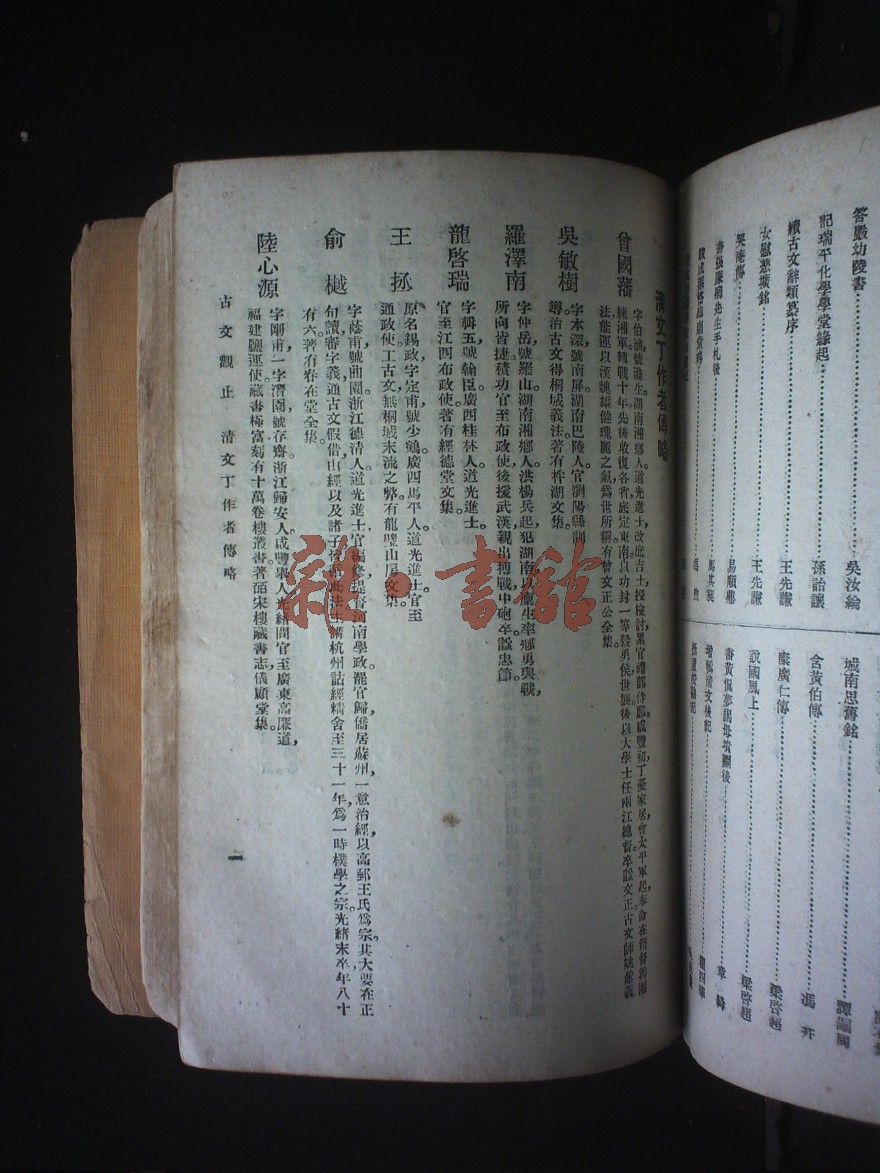 答嚴幼陵書 吳汝綸
記瑞平化學學堂緣起 孫詒讓
續古文辭類纂序 王先謙
女慰慈壙銘 王先謙
哭庵傳 易順鼎
書張廉卿先生手札後 馬其昶
城南思舊銘 譚嗣同
含黃伯傳 馮幵
康廣仁傳 梁啓超
說國風上 梁啓超
書黃侃夢謁母墳圖後 章絳
清文丁作者傳略
曾國藩
字伯涵號滌生湖南湘鄉人道光進士改庶吉士授檢討累官禮部侍郎咸豐初丁憂家居會太平軍起奉命在籍督辦團
練湘軍轉戰十年先後收復各省底定東南以功封一等毅勇侯世襲後以大學士任兩江總督卒諡文正古文師姚鼐義
法能運以漢魏雄健瑰麗之氣爲世所稱有曾文正公全集。
吳敏樹
字本深號南屏湖南巴陵人官瀏陽縣訓
導治古文得桐城義法著有柈湖文集。
羅澤南
字仲岳號羅山湖南湘鄉人洪楊兵起犯湖南以廩生率鄉勇與戰，
所向皆捷積功官至布政使後援武漢親出搏戰中砲卒諡忠節。
龍啓瑞
字輯五號翰臣廣西桂林人道光進士。
官至江西布政使著有經德堂文集。
王拯
原名錫政字定甫號少鶴廣西馬平人道光進士官至
通政使工古文無桐城末流之弊有龍壁山房文集。
俞樾
字蔭甫號曲園浙江德清人道光進士官編修提督河南學政罷官歸僑居蘇州一意治經以高郵王氏爲宗其大要在正
句讀審字義通古文假借由經以及諸子皆循此法主講杭州詁經精舍至三十一年爲一時樸學之宗光緒末卒年八十
有六著有春在堂全集。
陸心源
字剛甫一字潛園號存齋浙江歸安人咸豐舉人光緒間官至廣東高廉道，
福建鹽運使藏書極富刻有十萬卷樓叢書著皕宋樓藏書志儀顧堂集。
古文觀止 清文丁作者傳略
一
雜·書館